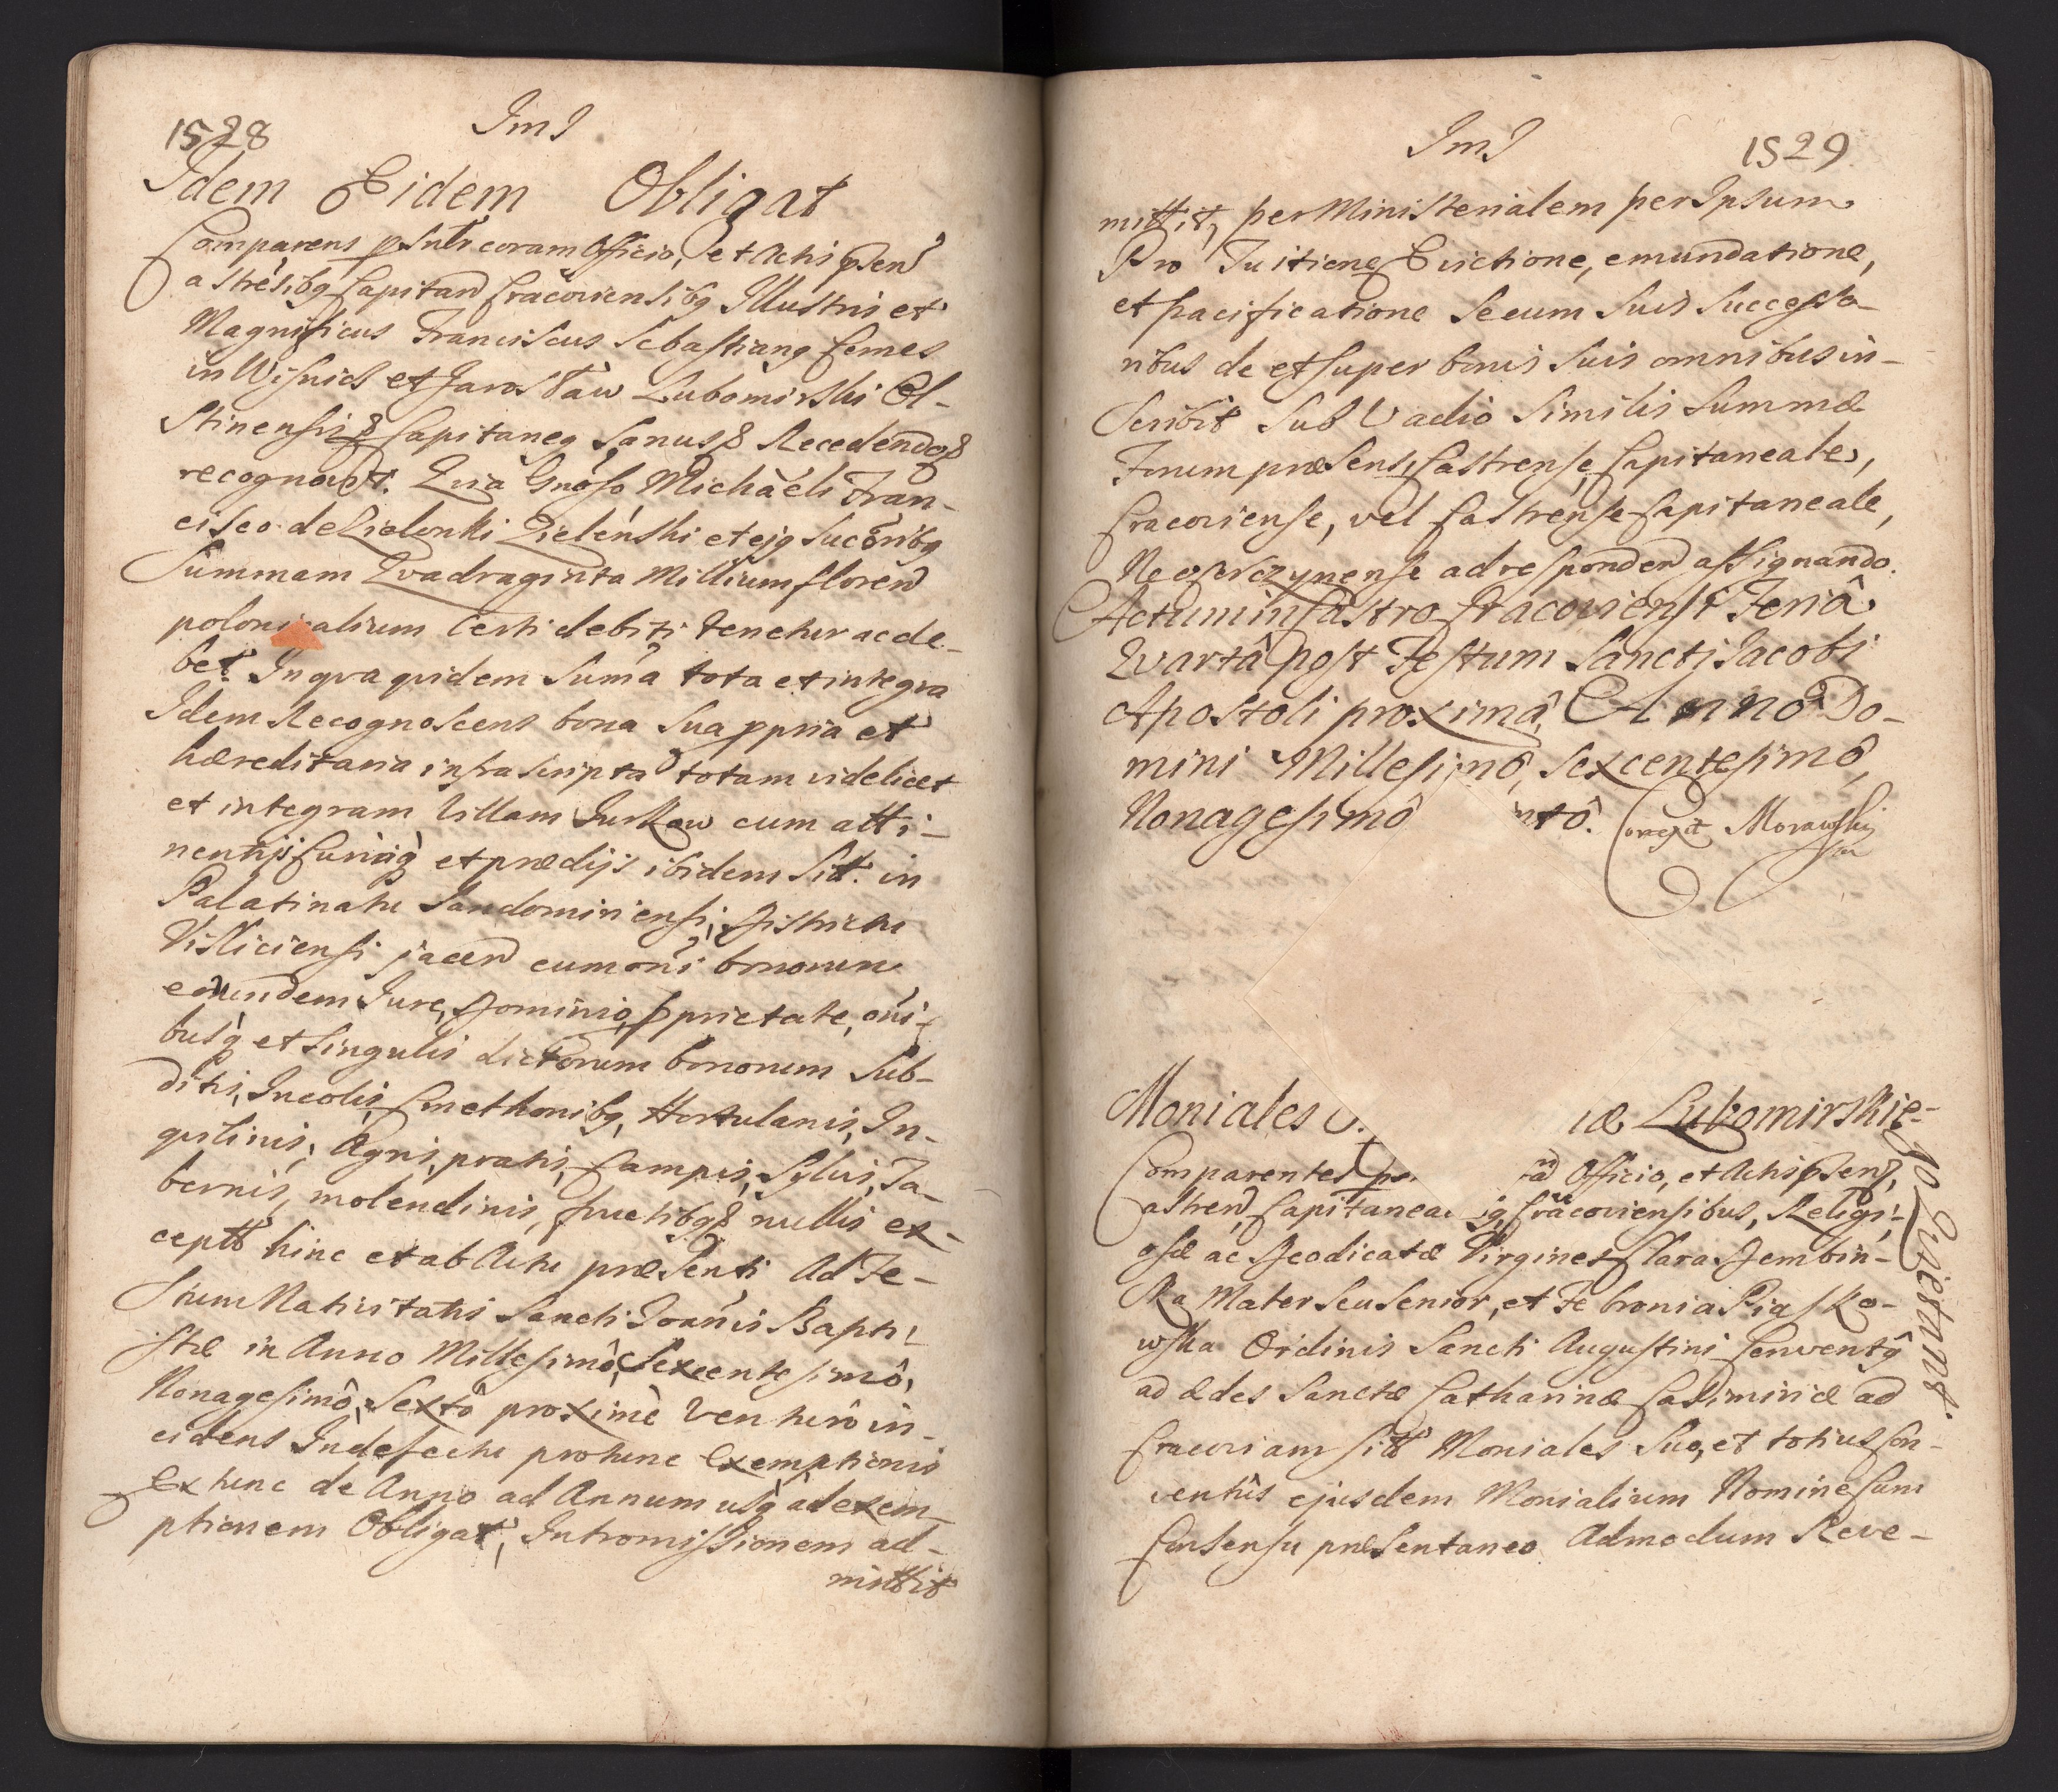 1528
ImJ
Idem Eidem Obligat
Comparens psntr coram Officio, et Actis psen
astrēsibq Capitan Cracoviensibq Illustris et
Magnificus Franciscus Sebastianq Comes
in Wisnicz et Jarosław Lubomirski Ol-
stinensis & Capitaneq Sanus & Recedendo &
recognovit. Quia Gnoso Michaeli Fran-
cisco de Zielonki Zielenski et ejq Sucōribq
Summam Qvadraginta Millium floren
polonicalium Certi debiti tenetur ac de-
bet. In qva qvidem Sumā tota et integra
Idem Recognoscens bona Sua ppria et
hæreditaria infrascripta totam videlicet
et integram Villam Jurkow cum atti-
nentijs Curiaq et prædijs ibidem Sitt. in
Palatinatu Sandomiriensi, Districtu
Visliciensi jacen cum oni bonorum
eorundem Jure, Dominio, pprietate, oni-
busq et Singulis dictorum bonorum Sub-
ditis, Incolis, Cmethonibq, Hortulanis, In-
qvilinis, Agris, pratis, Campis, Sylvis, Ta-
bernis, molendinis, fructibq & nullis ex-
ceptis hinc et ab Actu præsenti Ad Fe-
stum Nativitatis Sancti Joanis Bapti-
stæ in Anno Millesimô, Sexcentesimô,
Nonagesimô, Sextô proximè Venturô in-
cidens In defectu pro tunc Exemptionis
Ex tunc de Anno ad Annum usq ad exem-
ptionem Obligat, Intromissionem ad-
mittit
ImJ
1529
mittit, per Ministerialem per Ipsum
Pro Tuitione Evictione, emundatione,
et pacificatione Se cum Suis Successo-
ribus de et super bonis Suis omnibus in-
scribit Sub Vadio Similis Summæ
Forum præsens, Castrense, Capitaneale,
Cracoviense, vel Castrense Capitaneale,
Neoferczynense ad responden assignando.
Actum in Castro Cracoviensi Feriâ
Qvartâ post Festum Sancti Jacobi
Apostoli proximâ, Annô Do-
mini Millesimô, Sexcentesimô,
Nonagesimô ntô. Corexit Morawskij
Moniales iæ Lubomirskie-
go Qvietant.
Comparentes Officio, et Actis psen,
astren Capitanea Cracoviensibus, Religi-
osæ ac Deodicatæ Virgines Clara Dembin-
ska Mater Seu Senior, et Febronia Piasko-
wska Ordinis Sancti Augustini Conventq
ad ædes Sanctæ Catharinæ Casimiriæ ad
Cracoviam Sitt Moniales Suo, et totius Con-
ventûs ejusdem Monialium Nomine Cum
Consensu præsentaneo Admodum Reve-